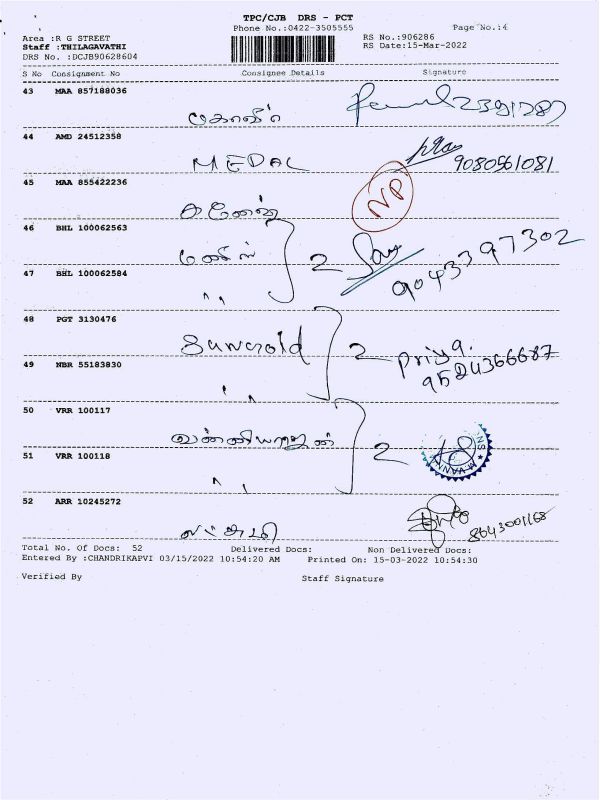 TPC/CJB DRS - PCT
Phone No.:0422-3505555
Page No.:4
Area :R G STREET
RS No.:906286
Staff :THILAGAVATHI
RS Date:15-Mar-2022
DRS No. :DCJB90628604
S No Consignment No Consignee Details Signature
43 MAA 857188036
கோவிந்
44 AMD 24512358
MEDAL
9080561081
45 MAA 855422236
கணேஷ்
NP
46 BHL 100062563
2
9043397302
47 BHL 100062584
" "
48 PGT 3130476
Suncrold 2 Priya.
49 NBR 55183830
9524366687
" "
50 VRR 100117
வன்னியராஜன் 2
51 VRR 100118
" "
52 ARR 10245272
லட்சுமி
8643001168
Total No. Of Docs: 52 Delivered Docs: Non Delivered Docs:
Entered By :CHANDRIKAPVI 03/15/2022 10:54:20 AM Printed On: 15-03-2022 10:54:30
Verified By Staff Signature